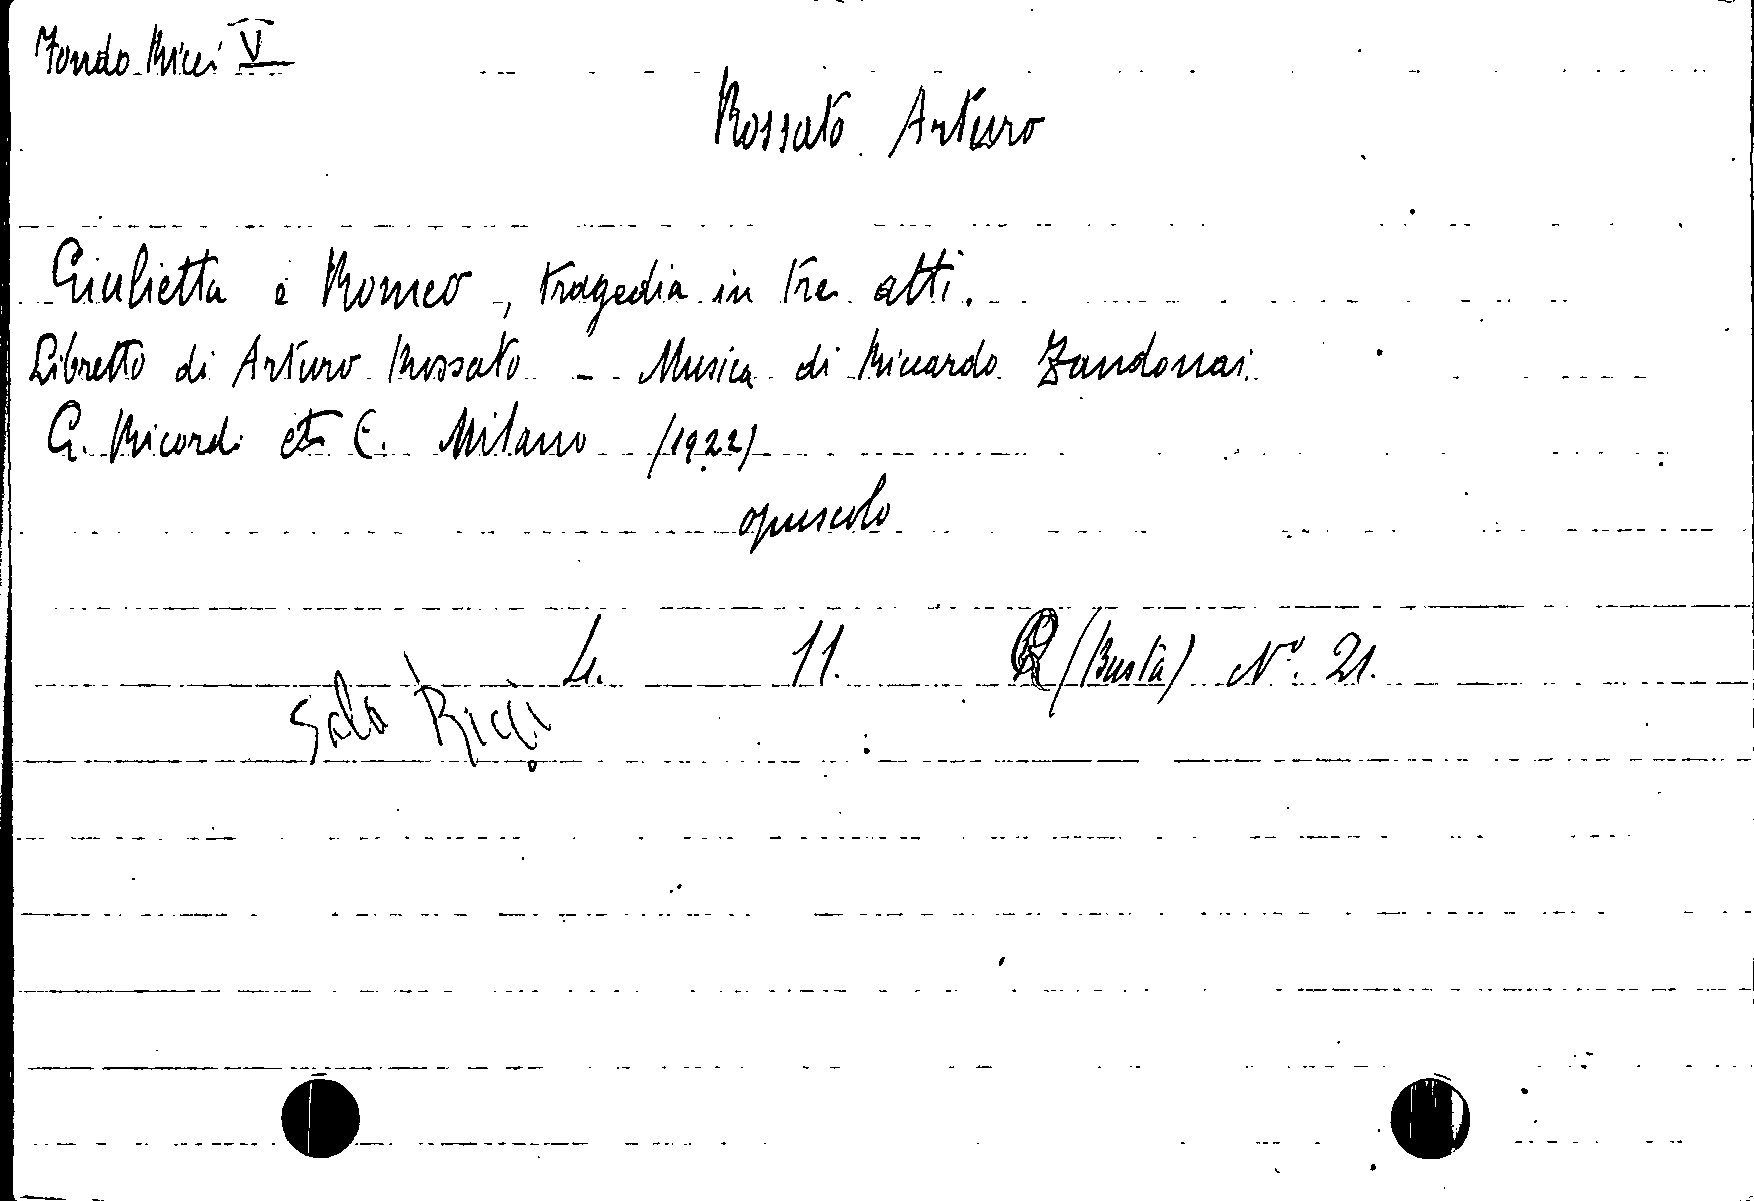 Fondo Ricci V
Rossato Arturo
Giulietta e Romeo, tragedia in tre atti.
Libretto di Arturo Rossato - Musica di Riccardo Zandonai.
G. Ricordi et C. Milano (1922)
opuscolo
4. 11. R (Busta) N°. 21.
Sala Ricci